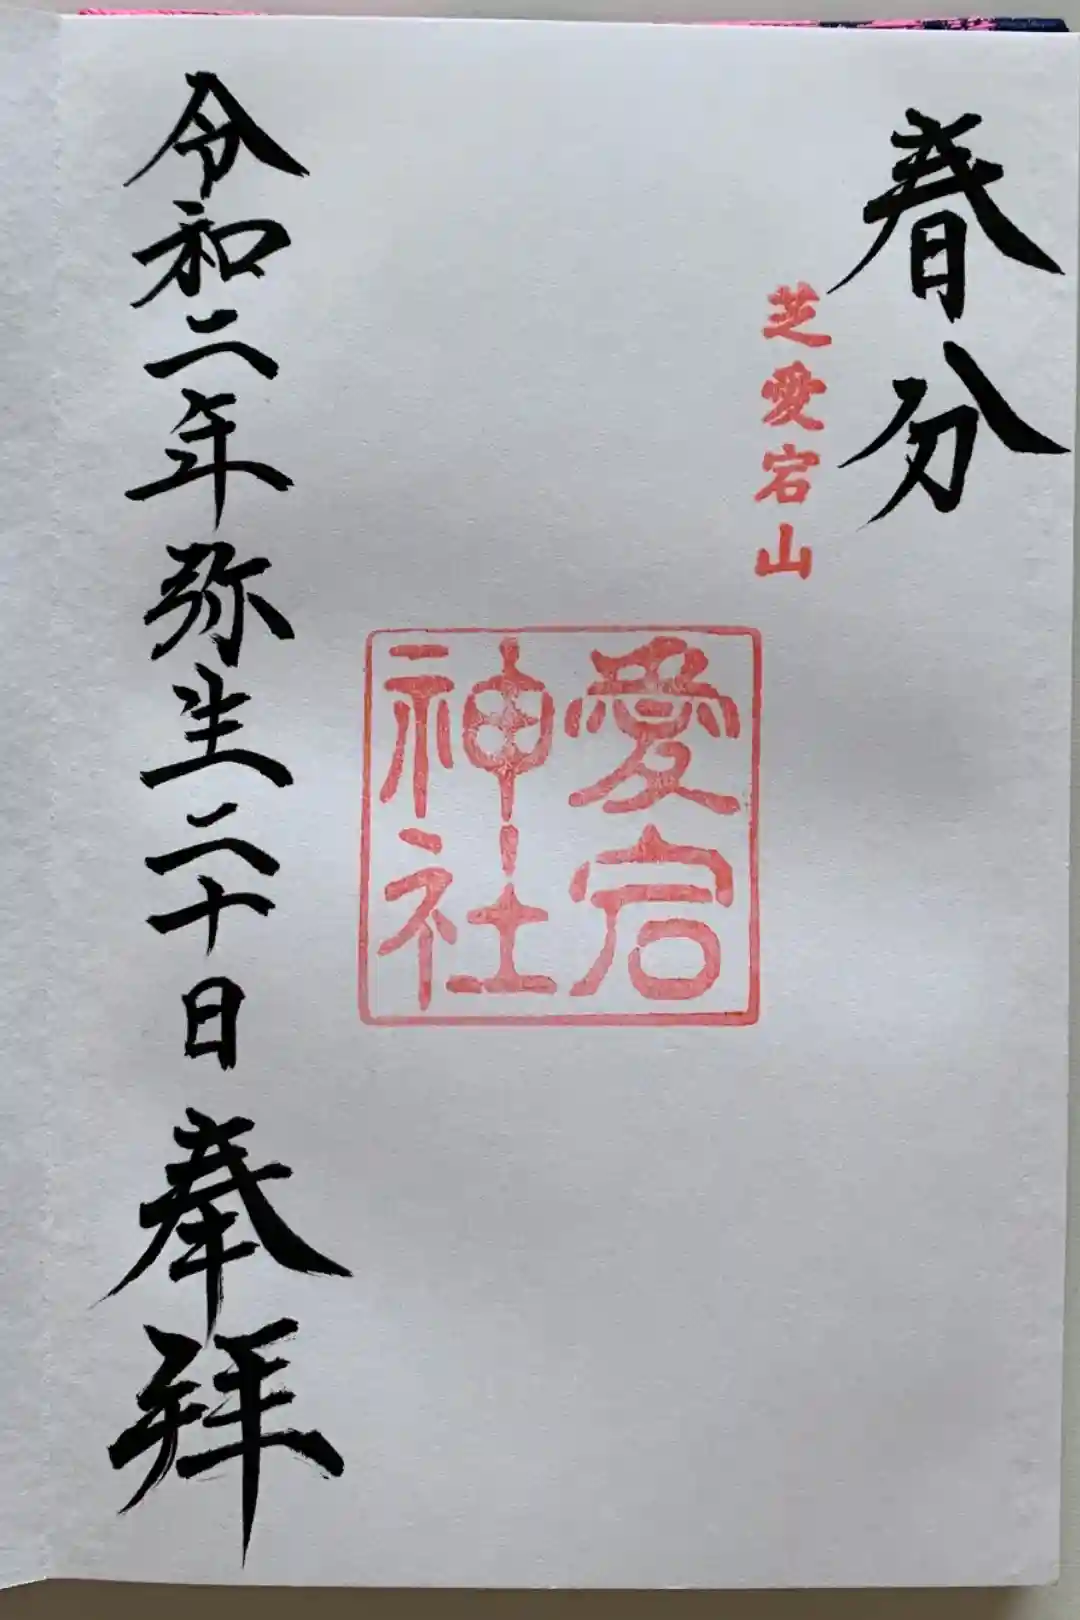 春分
芝愛宕山
愛宕
神社
令和二年弥生二十日奉拝